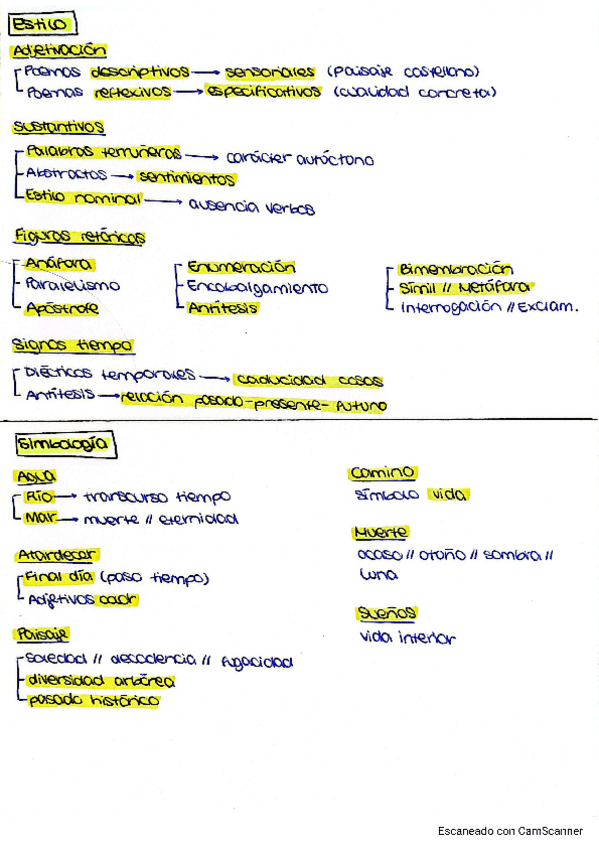 Estilo
Adjetivación
Poemas descriptivos → sensoriales (paisaje castellano)
Poemas reflexivos → especificativos (cualidad concreta)
Sustantivos
Palabras terruñeras → carácter autóctono
Abstractos → sentimientos
Estilo nominal → ausencia verbos
Figuras retóricas
Anáfora
Paralelismo
Apóstrofe
Enumeración
Encabalgamiento
Antítesis
Bimembración
Símil // Metáfora
Interrogación // Exclam.
Signos tiempo
Diécticos temporales → caducidad cosas
Antítesis → relación pasado-presente-futuro
Simbología
Agua
Río → transcurso tiempo
Mar → muerte // eternidad
Atardecer
Final día (paso tiempo)
Adjetivos
Paisaje
Soledad // decadencia // fugacidad
diversidad arbórea
pasado histórico
Camino
símbolo vida
Muerte
ocaso // otoño // sombra //
luna
Sueños
vida interior
Escaneado con CamScanner